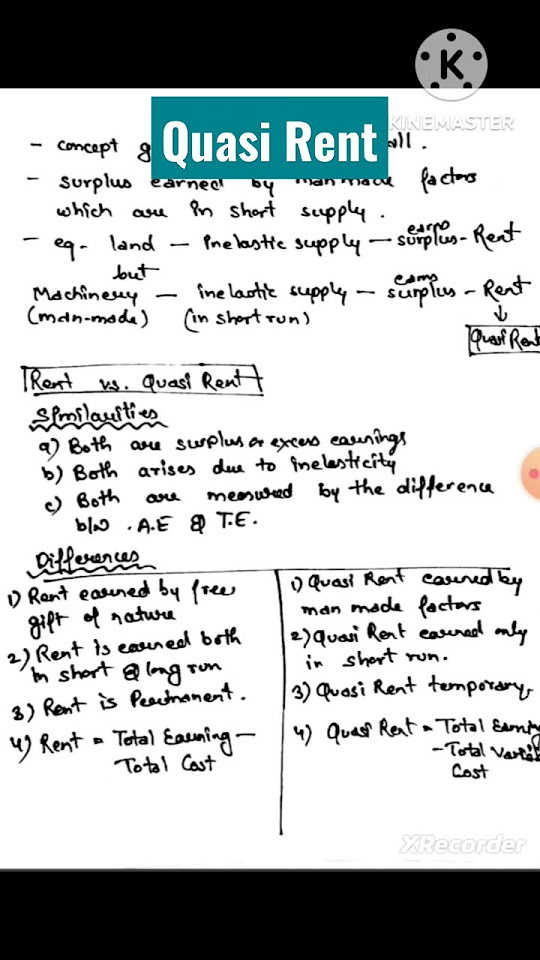 K
KINEMASTER
Quasi Rent
- concept g all.
- surplus earned by man made factors
which are in short supply.
- eg - land - Inelastic supply - earns surplus - Rent
but
Machinery - inelastic supply - earns surplus - Rent
(man-made) (in short run)
↓
Quasi Rent
Rent vs. Quasi Rent
Similarities
a) Both are surplus or excess earnings
b) Both arises due to inelasticity
c) Both are measured by the difference
b/w . A.E & T.E.
Differences
1) Rent earned by free
gift of nature
2) Rent is earned both
in short & long run
3) Rent is Permanent.
4) Rent = Total Earning -
Total Cost
1) Quasi Rent earned by
man made factors
2) Quasi Rent earned only
in short run.
3) Quasi Rent temporary
4) Quasi Rent = Total Earning
- Total Varia
Cost
XRecorder